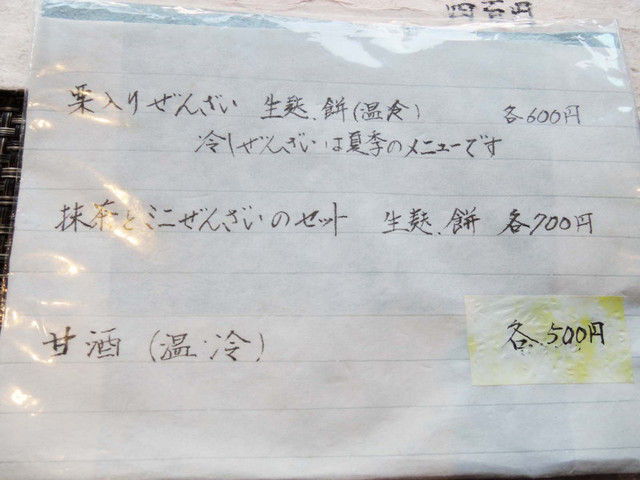 四百円
栗入りぜんざい 生麩.餅(温冷) 各600円
冷しぜんざいは夏季のメニューです
抹茶とミニぜんざいのセット 生麩.餅 各700円
甘酒(温.冷) 各.500円